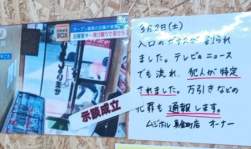 示談成立
3月2日(土)
入口のガラスが割られ
ました。テレビのニュース
でも流れ、犯人が特定
されました。万引きなどの
犯罪も通報します。
オーナー